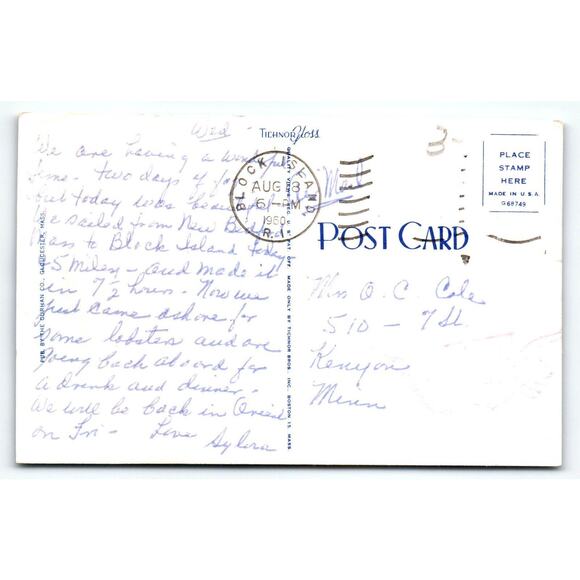 Wed -
We are having a wonderful
time - two days of fog
but today was beautiful
We sailed from New Bed
Mass to Block Island today
5 miles - and made it
in 7 1/2 hours - Now we
just came ashore for
some lobsters and are
going back aboard for
a drink and dinner -
We will be back in
on Fri - Love
TICHNOR Gloss
BLOCK ISLAND,
AUG 18
6 - PM
1960
R.I.
Air Mail
PLACE
STAMP
HERE
MADE IN U.S.A.
G68749
POST CARD
Miss O. C. Cole
510 - 7 St.
Kenyon
Minn
PUB. BY THE CORPHAN CO., GLOUCESTER, MASS.
MADE ONLY BY TICHNOR BROS. INC., BOSTON 15, MASS.